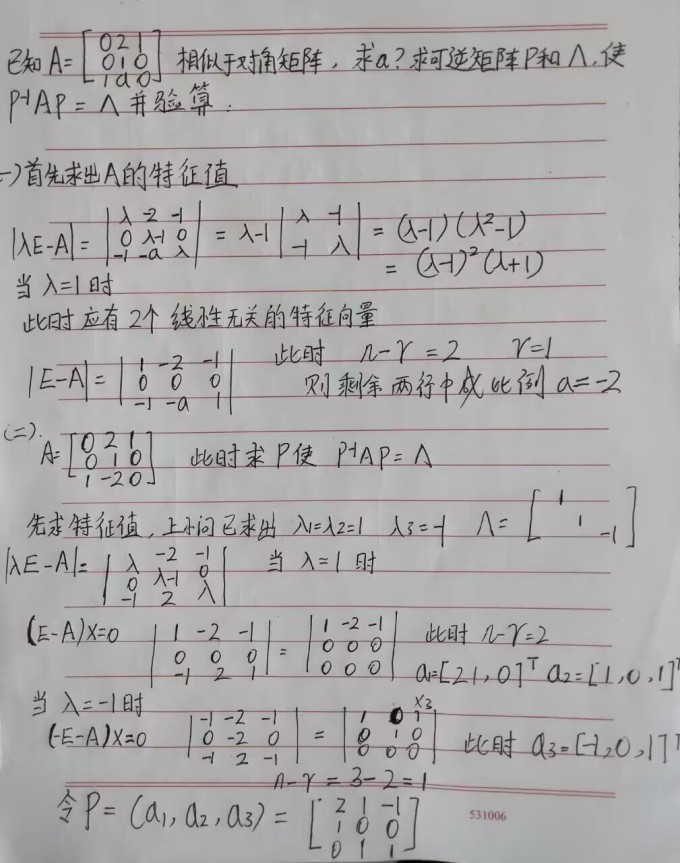 已知A=[0 2 1; 0 1 0; 1 a 0] 相似于对角矩阵，求a？求可逆矩阵P和Λ，使
P⁻¹AP = Λ 并验算．
(一)首先求出A的特征值
|λE-A|= |λ -2 -1; 0 λ-1 0; -1 -a λ| = λ-1 |λ -1; -1 λ| = (λ-1)(λ²-1)
= (λ-1)²(λ+1)
当 λ=1时
此时应有2个 线性无关的特征向量
|E-A|= |1 -2 -1; 0 0 0; -1 -a 1| 此时 n-r=2 r=1
则剩余两行中成比例 a=-2
(二).
A=[0 2 1; 0 1 0; 1 -2 0] 此时求P使 P⁻¹AP=Λ
先求特征值，上小问已求出 λ1=λ2=1 λ3=-1 Λ=[1 1 -1]
|λE-A|= |λ -2 -1; 0 λ-1 0; -1 2 λ| 当 λ=1 时
(E-A)X=0 |1 -2 -1; 0 0 0; -1 2 1| = |1 -2 -1; 0 0 0; 0 0 0| 此时 n-r=2
a1=[2 1,0]ᵀ a2=[1,0,1]ᵀ
当 λ=-1时
(-E-A)X=0 |-1 -2 -1; 0 -2 0; -1 2 -1| = |1 0 1; 0 1 0; 0 0 0| x3 此时 a3=[-1,0,1]ᵀ
n-r=3-2=1
令P=(a1,a2,a3)=[2 1 -1; 1 0 0; 0 1 1]
531006